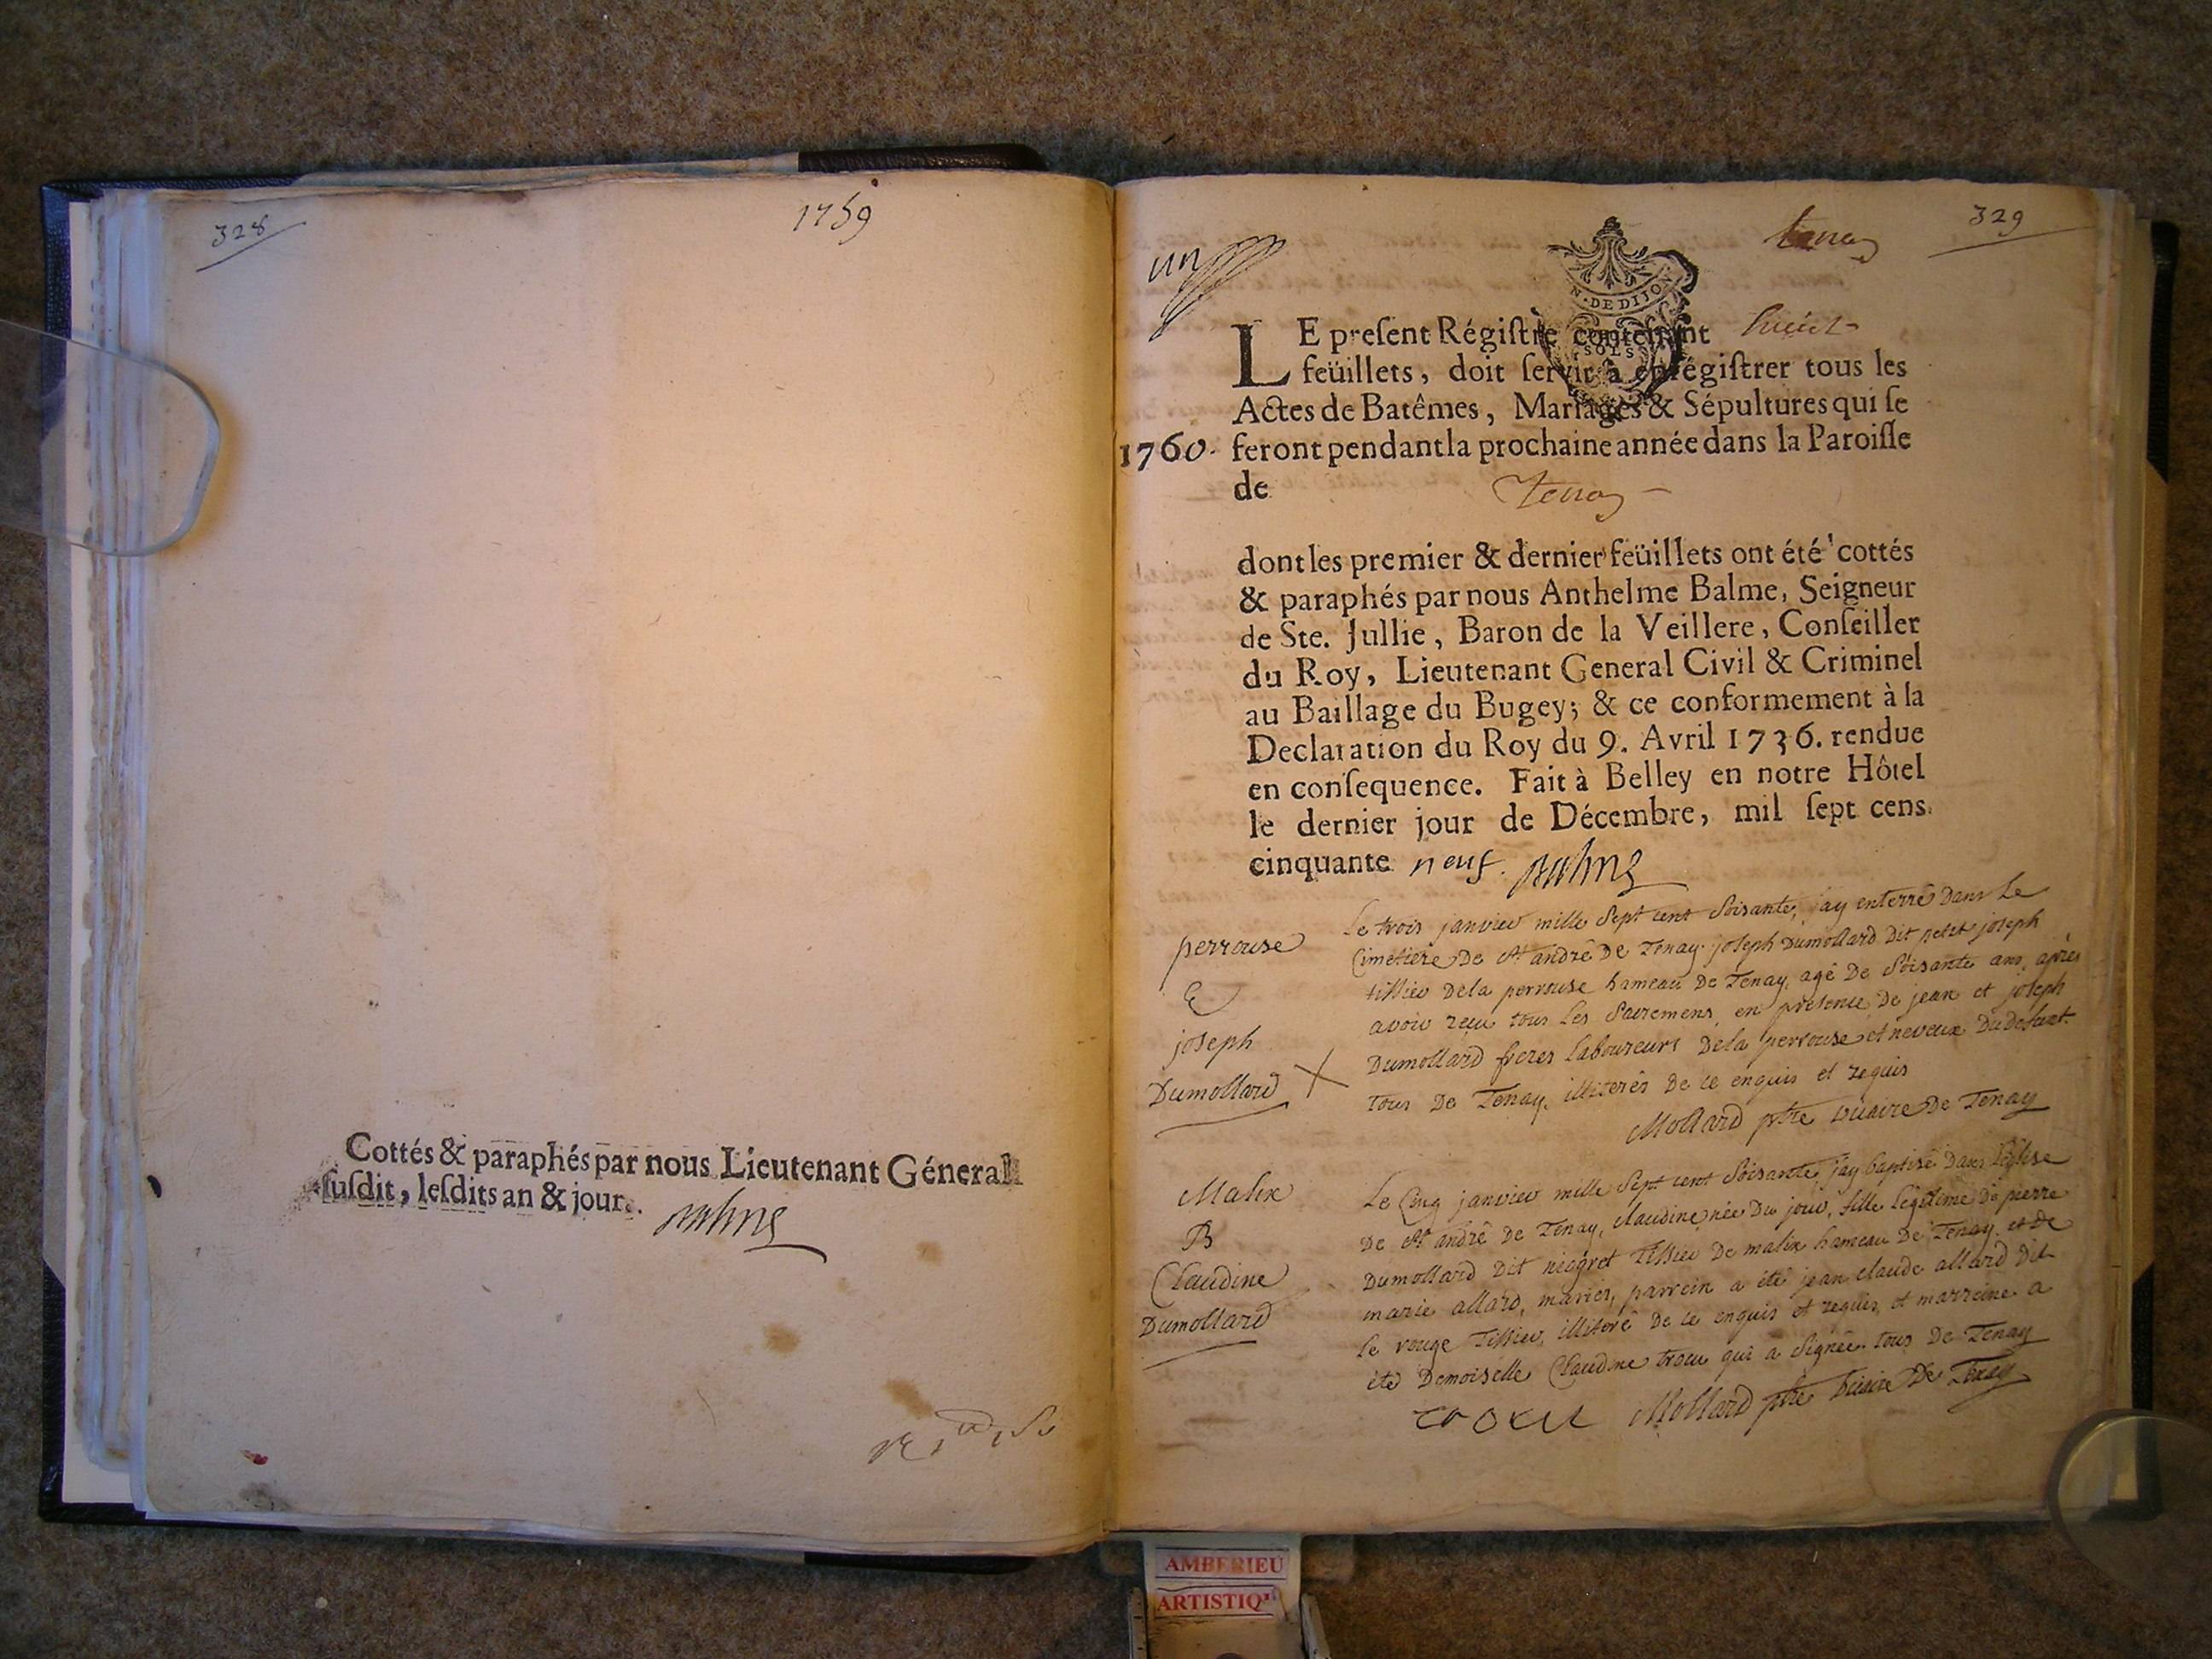 328
1759
Cottés & paraphés par nous Lieutenant Géneral
susdit, lesdits an & jour.
329
un
tenay
N. DE DIJON
SOLS
LE present Régistre contenant huict
feüillets, doit servir à enrégistrer tous les
Actes de Batêmes, Mariages & Sépultures qui se
1760. feront pendant la prochaine année dans la Paroisse
de Tenay
dont les premier & dernier feüillets ont été cottés
& paraphés par nous Anthelme Balme, Seigneur
de Ste. Jullie, Baron de la Veillere, Conseiller
du Roy, Lieutenant General Civil & Criminel
au Baillage du Bugey; & ce conformement à la
Declaration du Roy du 9. Avril 1736. rendue
en consequence. Fait à Belley en notre Hôtel
le dernier jour de Décembre, mil sept cens
cinquante neuf. Balme
perrouse
E
joseph
Dumollard
Le trois janvier mille Sept cent Soisante, jay enterré Dans Le
Cimetiere De st andré De Tenay joseph Dumollard Dit petit joseph
tissier De la perrouse hameau De Tenay, agé De Soisante ans, après
avoir reçu tous Les Sacremens, en presence De jean et joseph
Dumollard freres Laboureurs De la perrouse et neveux Du defunt
tous De Tenay, illiterés De ce enquis et requis
Mollard ptre vicaire De Tenay
Malix
B
Claudine
Dumollard
Le Cinq janvier mille Sept cent Soisante jay baptisé Dans l'église
De st andré De Tenay, Claudine née Du jour, fille Legitime De pierre
Dumollard Dit negret Tissier De malix hameau De Tenay et De
marie allard, mariés, parrein a été jean claude allard Dit
le rouge Tissier, illiteré De ce enquis et requis, et marreine a
été Demoiselle Claudine trocu qui a Signée tous De Tenay
trocu Mollard ptre vicaire De Tenay
AMBERIEU
ARTISTIQ